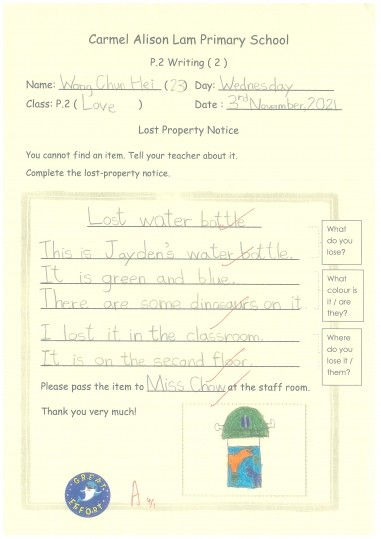 Carmel Alison Lam Primary School
P.2 Writing ( 2 )
Name: Wong Chun Hei (23) Day: Wednesday
Class: P.2 ( Love ) Date : 3rd November, 2021
Lost Property Notice
You cannot find an item. Tell your teacher about it.
Complete the lost-property notice.
Lost water bottle
This is Jayden's water bottle.
It is green and blue.
There are some dinosaurs on it.
I lost it in the classroom.
It is on the second floor.
Please pass the item to Miss Chow at the staff room.
Thank you very much!
What
do you
lose?
What
colour is
it / are
they?
Where
do you
lose it /
them?
GREAT
EFFORT
A